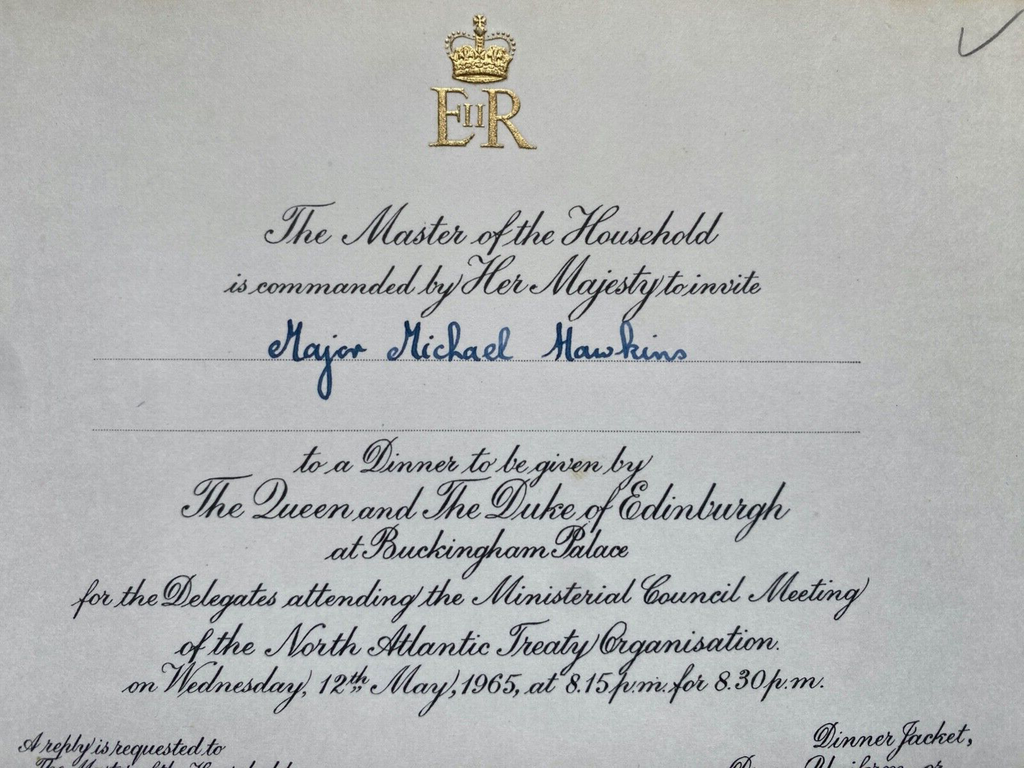 EIIR
The Master of the Household
is commanded by Her Majesty to invite
Major Michael Hawkins
to a Dinner to be given by
The Queen and The Duke of Edinburgh
at Buckingham Palace
for the Delegates attending the Ministerial Council Meeting
of the North Atlantic Treaty Organisation.
on Wednesday, 12th May, 1965, at 8.15 p.m. for 8.30 p.m.
A reply is requested to
The Master of the Household
Dinner Jacket,
Uniform or